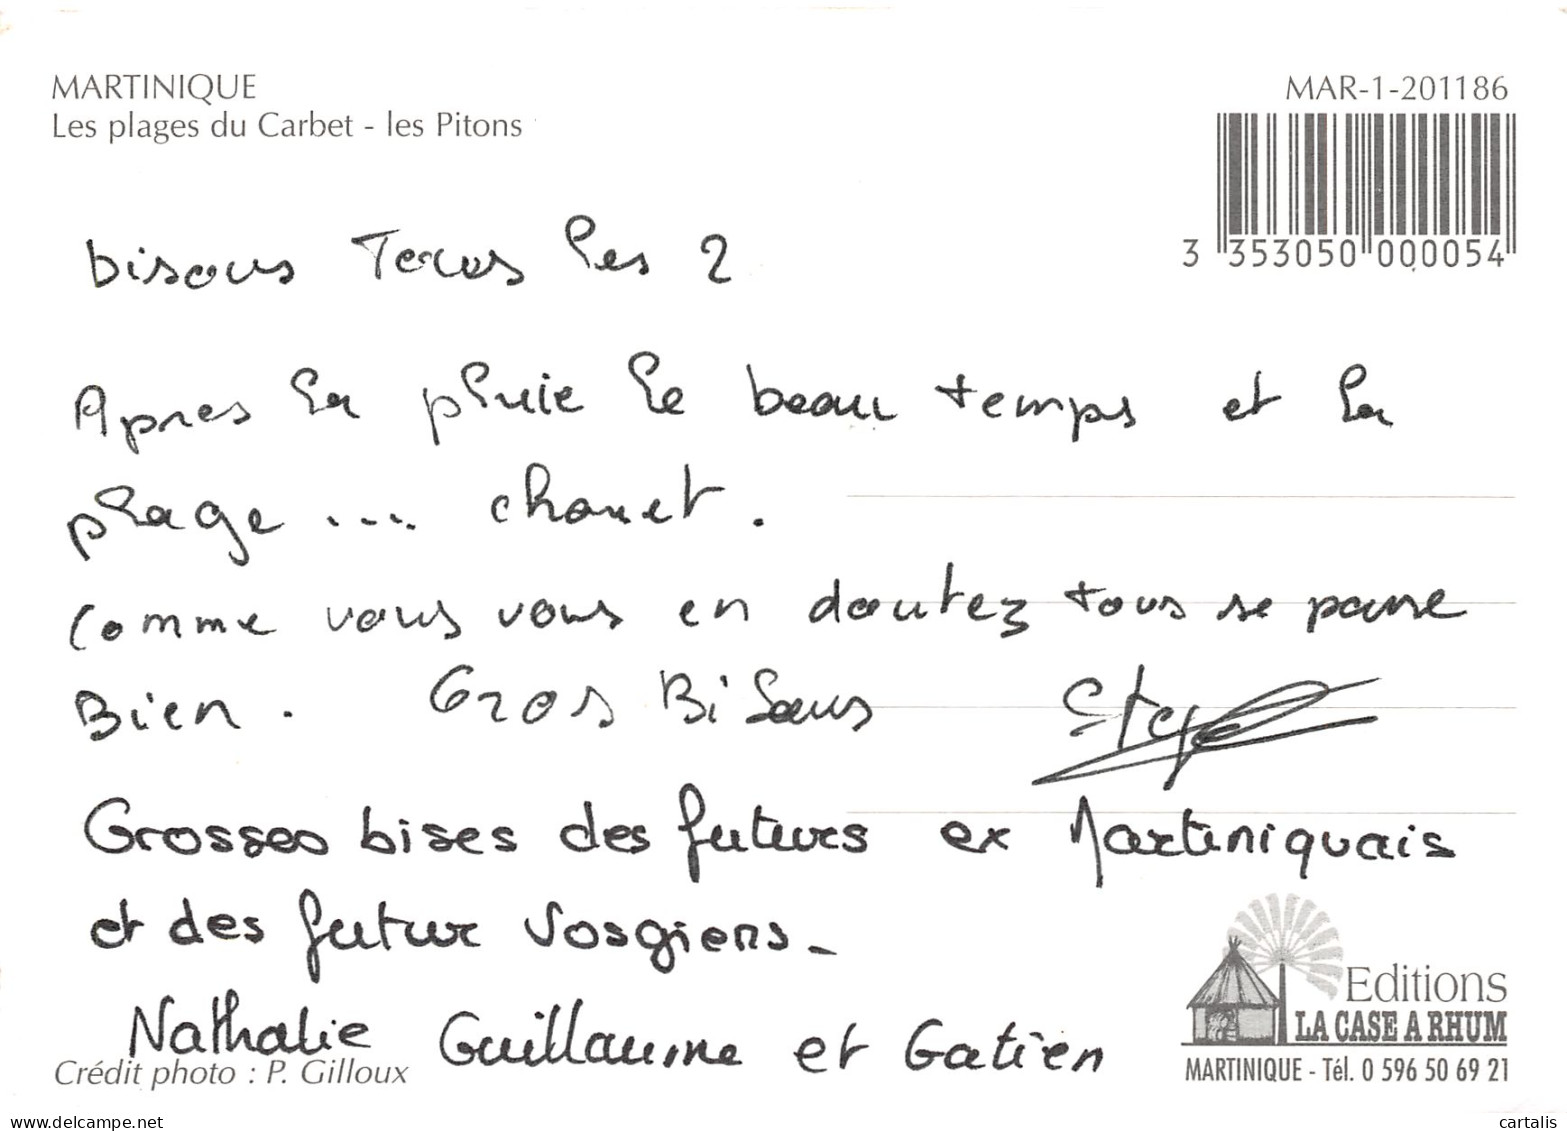 MARTINIQUE
Les plages du Carbet - les Pitons
MAR-1-201186
3 353050 000054
bisous Tous les 2
Apres la pluie le beau temps et la
plage .... chouet.
Comme vous vous en doutez tous se passe
Bien. Gros BiSous
Grosses bises des futurs ex Martiniquais
et des futur Vosgiens-
Nathalie Guillaume et Gatien
Crédit photo : P. Gilloux
Editions
LA CASE A RHUM
MARTINIQUE - Tél. 0 596 50 69 21
delcampe.net
cartalis